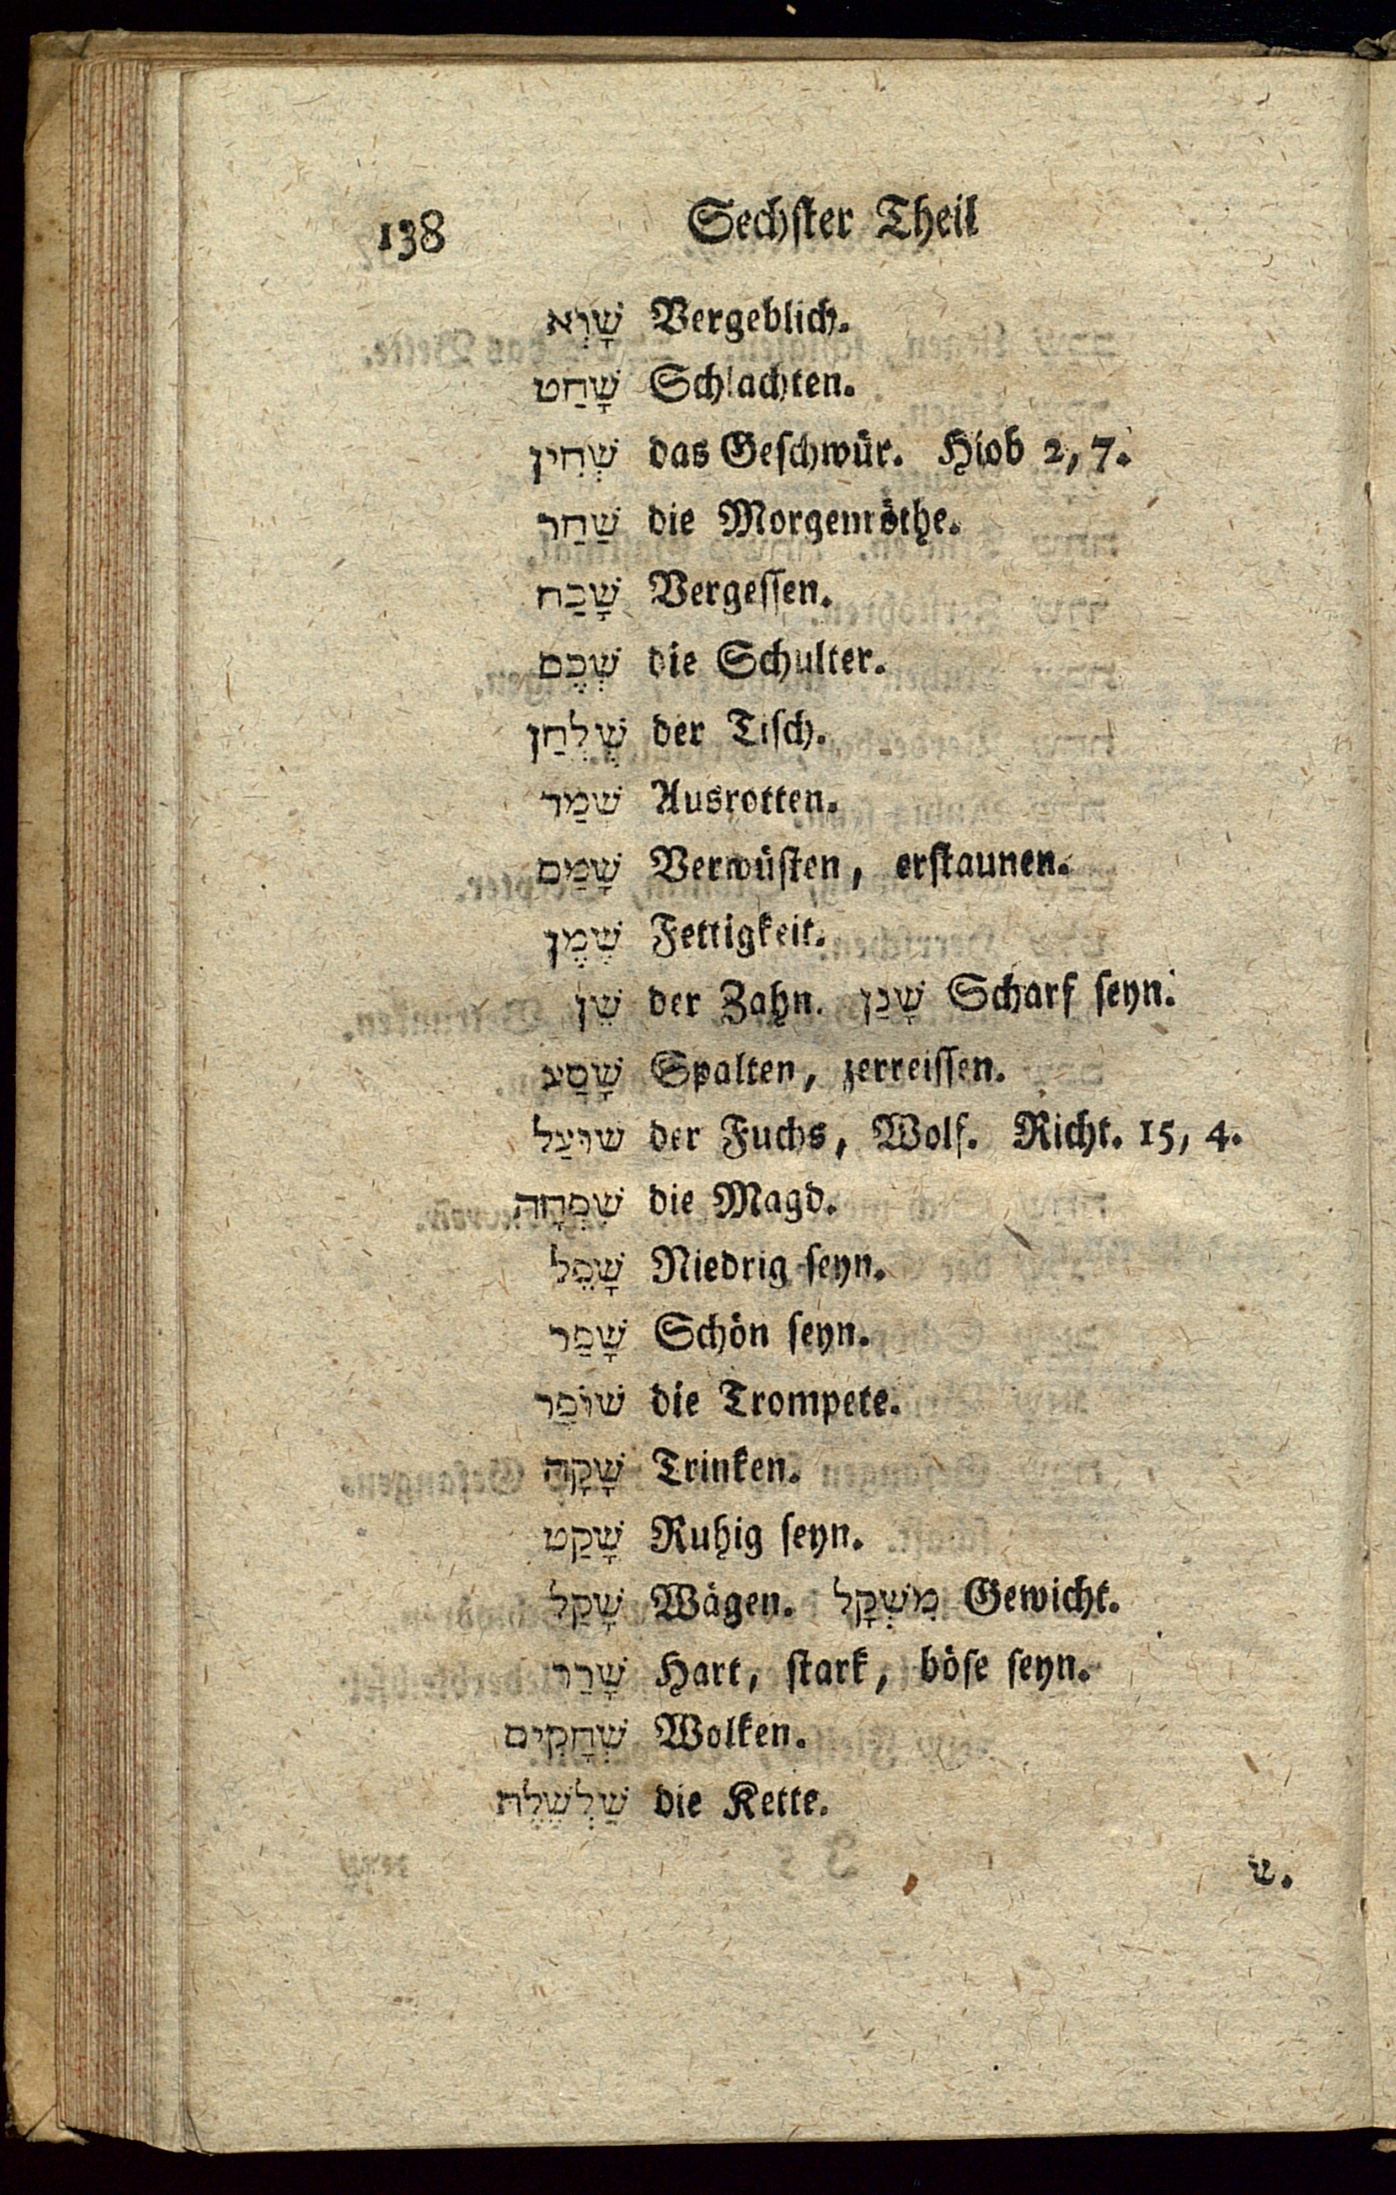 138 Sechster Theil
שָׁוְא Vergeblich.
שָׁחַט Schlachten.
שְׁחִין das Geschwür. Hiob 2, 7.
שַׁחַר die Morgenröthe.
שָׁכַח Vergessen.
שְׁכֶם die Schulter.
שֻׁלְחַן der Tisch.
שׁמַד Ausrotten.
שָׁמַם Verwüsten, erstaunen.
שֶׁמֶן Fettigkeit.
שֵׁן der Zahn. שָׁנַן Scharf seyn.
שָׁסַע Spalten, zerreissen.
שׁוּעַל der Fuchs, Wolf. Richt. 15, 4.
שִׁפְחָה die Magd.
שָׁפֵל Niedrig seyn.
שָׁפַר Schön seyn.
שׁוֹפַר die Trompete.
שָׁקָה Trinken.
שָׁקַט Ruhig seyn.
שָׁקַל Wägen. מִשְׁקָל Gewicht.
שָׁרַר Hart, stark, böse seyn.
שְׁחָקִים Wolken.
שַׁלְשֶׁלֶת die Kette.
ש.